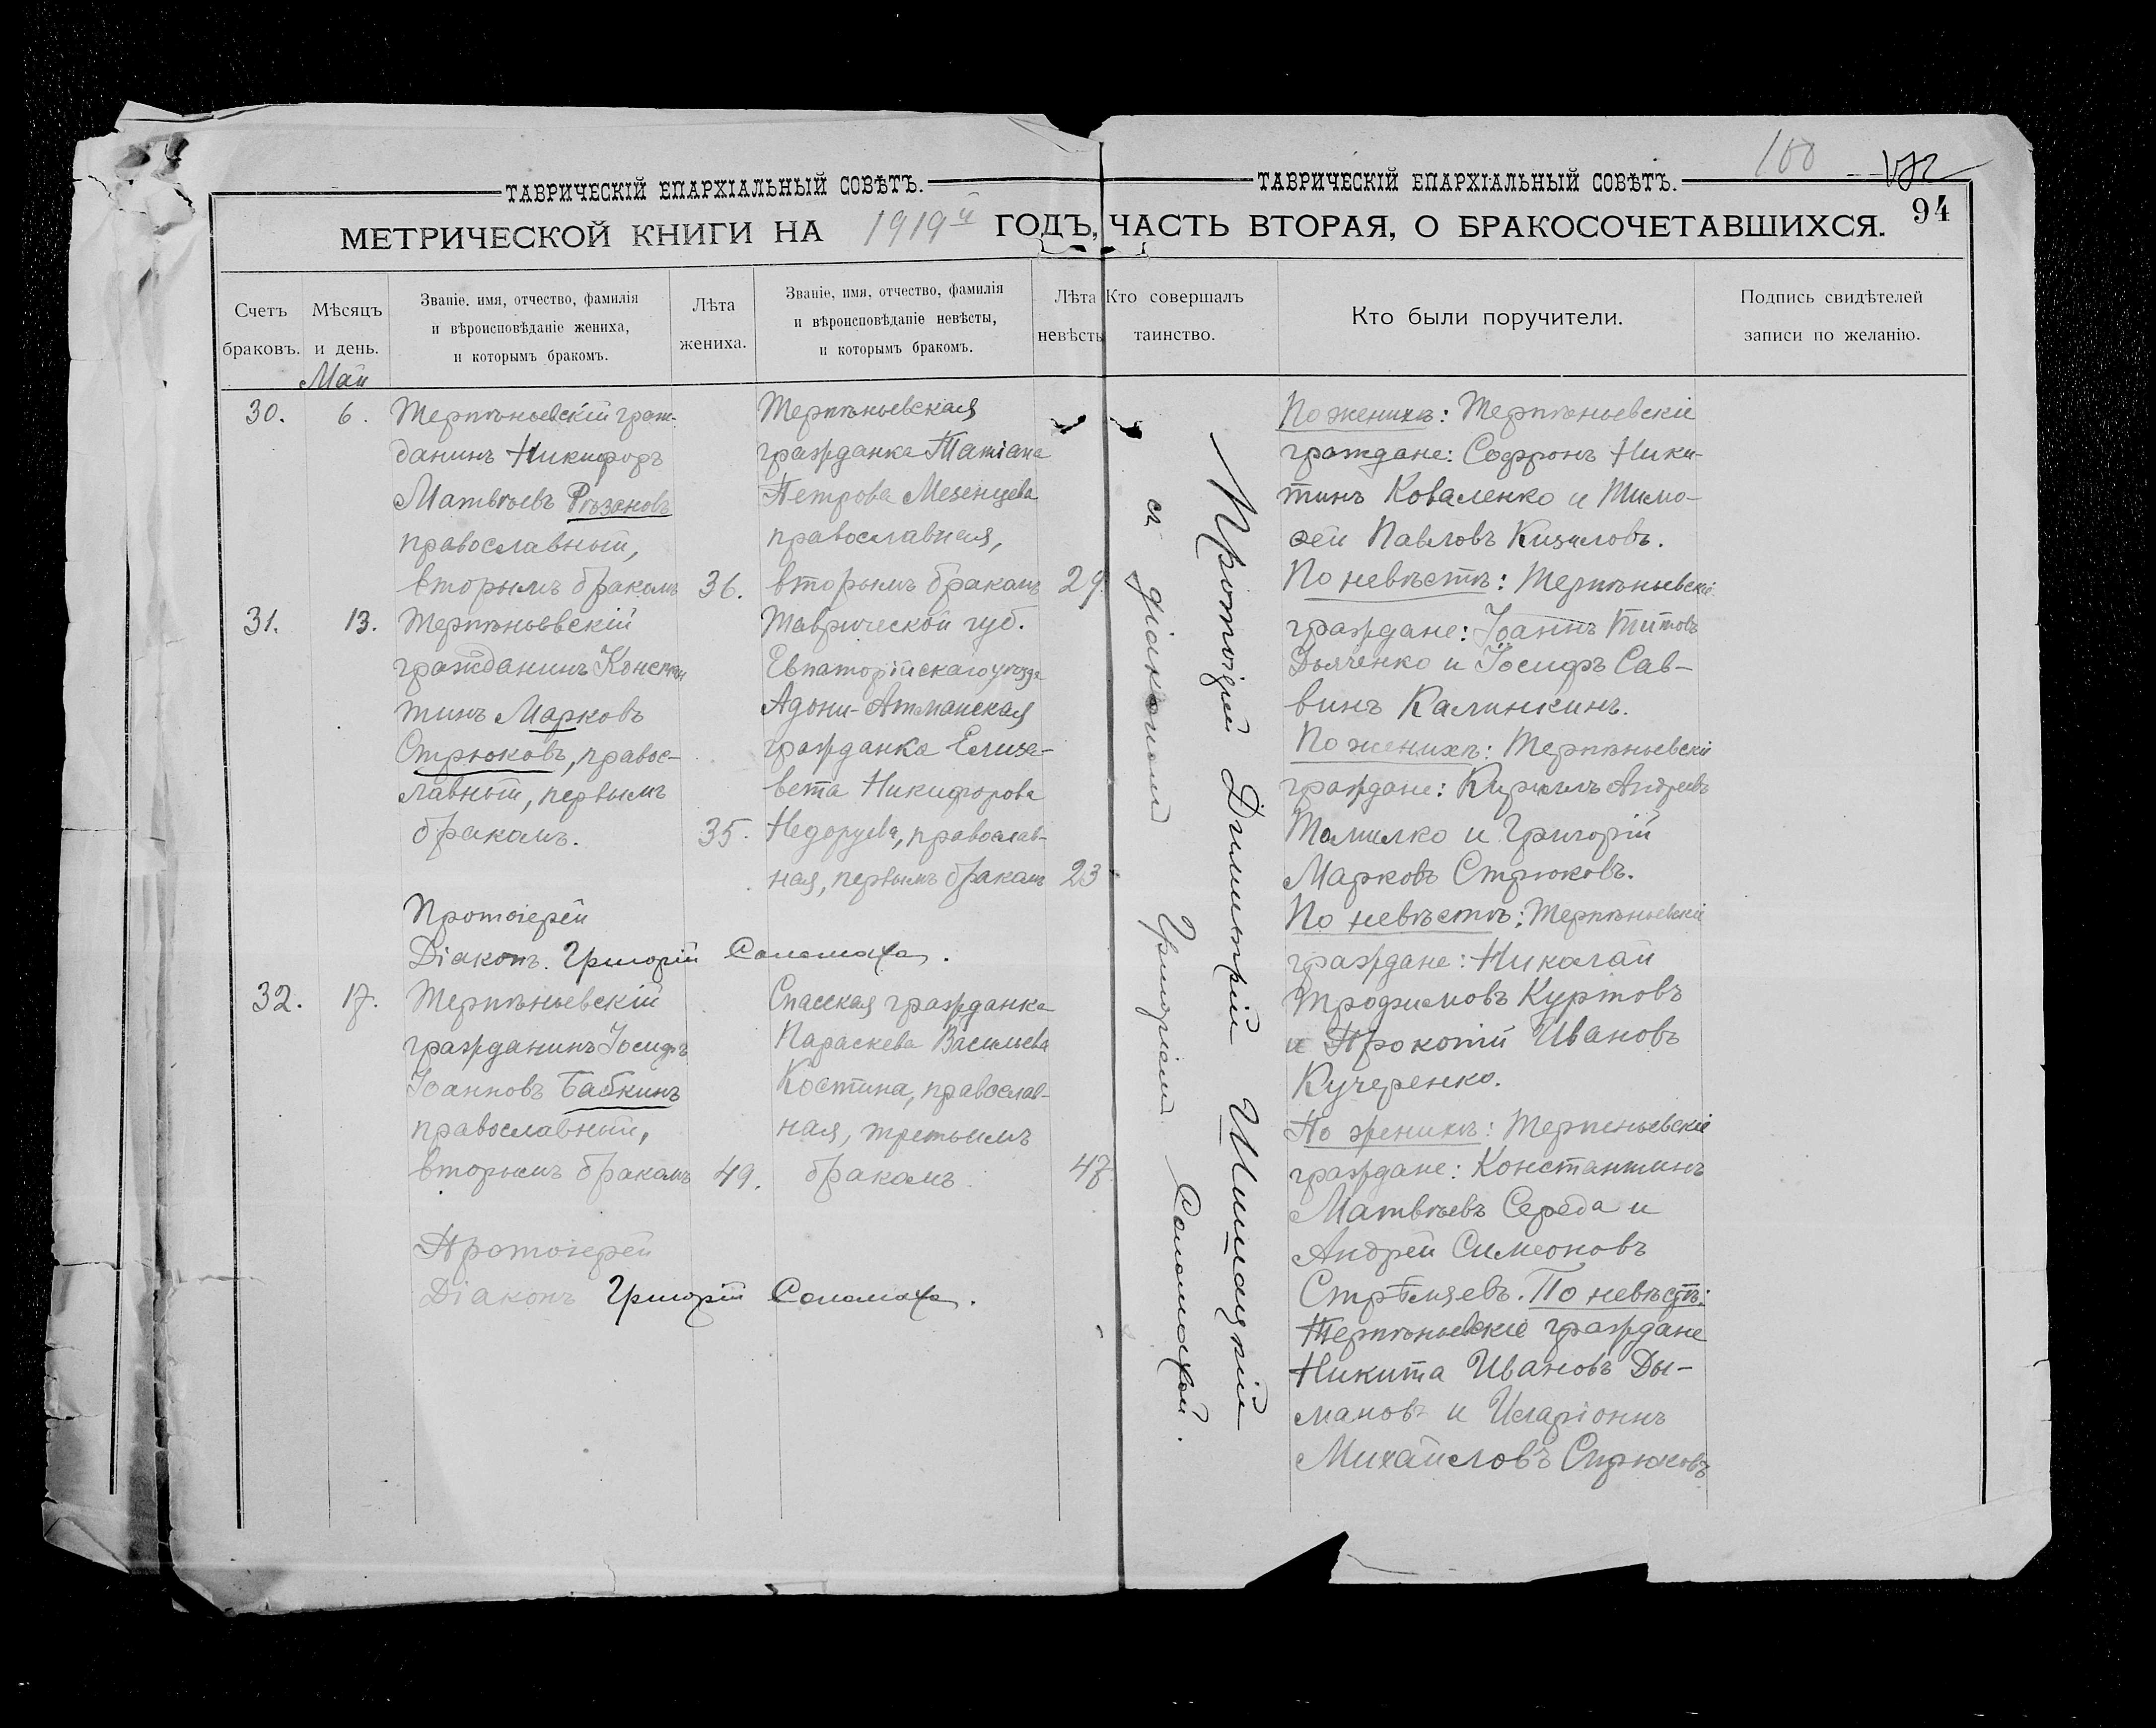 100
94
ТАВРИЧЕСКІЙ ЕПАРХІАЛЬНЫЙ СОВѢТЪ.
ТАВРИЧЕСКІЙ ЕПАРХІАЛЬНЫЙ СОВѢТЪ.
МЕТРИЧЕСКОЙ КНИГИ НА 1919й ГОДЪ, ЧАСТЬ ВТОРАЯ, О БРАКОСОЧЕТАВШИХСЯ.
Счетъ
браковъ.
Мѣсяцъ
и день.
Званіе. имя, отчество, фамилія
и вѣроисповѣданіе жениха,
и которымъ бракомъ.
Лѣта
жениха.
Званіе, имя, отчество, фамилія
и вѣроисповѣданіе невѣсты,
и которымъ бракомъ.
Лѣта
невѣсты
Кто совершалъ
таинство.
Кто были поручители.
Подпись свидѣтелей
записи по желанію.
Май
30.
6.
Терпѣньевскій граж-
данинъ Никифоръ
Матвѣевъ Рѣзановъ
православный,
вторымъ бракомъ
36.
Терпѣньевская
гражданка Татіана
Петрова Мезенцева
православная,
вторымъ бракомъ
29.
31.
13.
Терпѣньевскій
гражданинъ Констан
тинъ Марковъ
Стрюковъ, правос-
лавный, первымъ
бракомъ.
35.
Таврической губ.
Евпаторійскаго уѣзда
Адони-Атманская
гражданка Елиза-
вета Никифорова
православ-
ная, первымъ бракомъ
23
Протоіерей
Діаконъ. Григорій Соломаха.
32.
17.
Терпѣньевскій
гражданинъ Іосифъ
Іоанновъ Бабкинъ
православный,
вторымъ бракомъ
49.
Спасская гражданка
Параскева Васильева
Костина, православ-
ная, третьимъ
бракомъ
47.
Протоіерей
Діаконъ Григорій Соломаха.
Протоіерей Димитрій Шишацкій
съ діакономъ Григоріемъ Соломахой.
По женихѣ: Терпѣньевскіе
граждане: Софронъ Ники-
тинъ Коваленко и Тимо-
ѳей Павловъ Кизиловъ.
По невѣстѣ: Терпѣньевскіе
граждане: Іоаннъ Титовъ
Дьяченко и Іосифъ Сав-
винъ Калинкинъ.
По женихѣ: Терпѣньевскіе
граждане: Кириллъ Андреевъ
Томилко и Григорій
Марковъ Стрюковъ.
По невѣстѣ: Терпѣньевскіе
граждане: Николай
Трофимовъ Куртовъ
и Прокопій Ивановъ
Кучеренко.
По женихѣ: Терпеньевскіе
граждане: Константинъ
Матвѣевъ Середа и
Андрей Симеоновъ
Стрѣльцевъ. По невѣстѣ:
Терпѣньевскіе граждане
Никита Ивановъ Ды-
мановъ и Иларіонъ
Михайловъ Стрюковъ